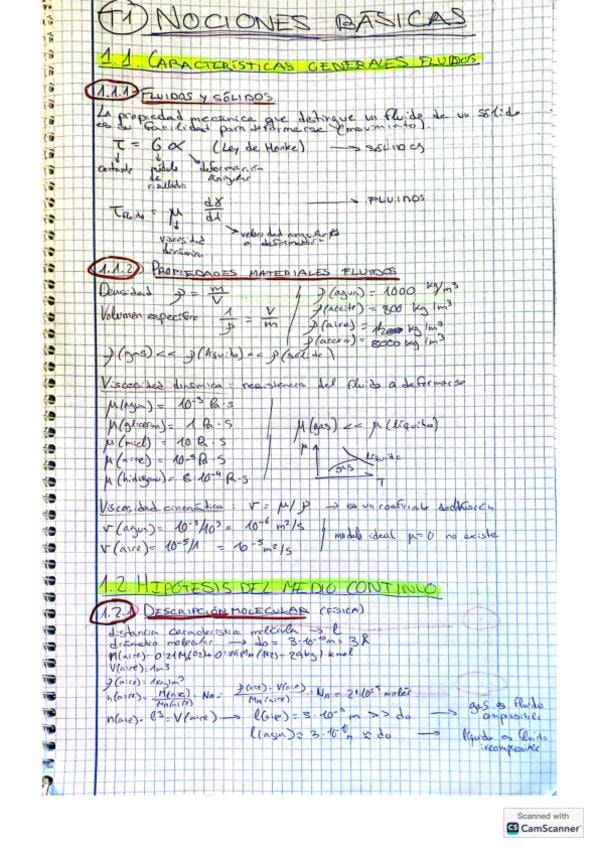 T1 NOCIONES BÁSICAS
1.1. CARACTERÍSTICAS GENERALES FLUIDOS
1.1.1 FLUIDOS Y SÓLIDOS
La propiedad mecánica que distingue un fluido de un sólido
es su facilidad para deformarse (movimiento).
τ = G α (Ley de Hooke) → SÓLIDOS
cortante módulo de cizalladura deformación angular
τ fluido = μ dγ/dt → FLUIDOS
viscosidad dinámica velocidad angular deformación
1.1.2 PROPIEDADES MATERIALES FLUIDOS
Densidad ρ = m/V ρ(agua) = 1000 kg/m³
Volumen específico 1/ρ = V/m ρ(aceite) = 800 kg/m³
ρ(aire) = kg/m³
ρ(acero) = 8000 kg/m³
ρ(gas) << ρ(líquido) ρ(sólido)
Viscosidad dinámica: resistencia del fluido a deformarse
μ(agua) = 10⁻³ Pa·s
μ(glicerina) = 1 Pa·s μ(gas) << μ(líquido)
μ(miel) = 10 Pa·s μ líquido
μ(aire) = 10⁻⁵ Pa·s gas T
μ(hidrógeno) = 10⁻⁴ Pa·s
Viscosidad cinemática: ν = μ/ρ → es un coeficiente
ν(agua) = 10⁻³/10³ = 10⁻⁶ m²/s modelo ideal μ=0 no existe
ν(aire) = 10⁻⁵/1 = 10⁻⁵ m²/s
1.2 HIPÓTESIS DEL MEDIO CONTINUO
1.2.1 DESCRIPCIÓN MOLECULAR (FÍSICA)
distancia característica molécula → l
diámetro molecular → do = 3·10⁻¹⁰ m = 3 Å
M(aire) = 29 kg/kmol
V(aire) = 1m³
ρ(aire) = 1kg/m³
n(aire) = · Na = ρ(aire)·V(aire) / Mm(aire) · Na =
n(aire)· l³ = V(aire) → l(aire) = 3·10 m >> do → gas es fluido compresible
l(agua) = 3·10 m ≈ do → líquido es fluido incompresible
Scanned with
CS CamScanner